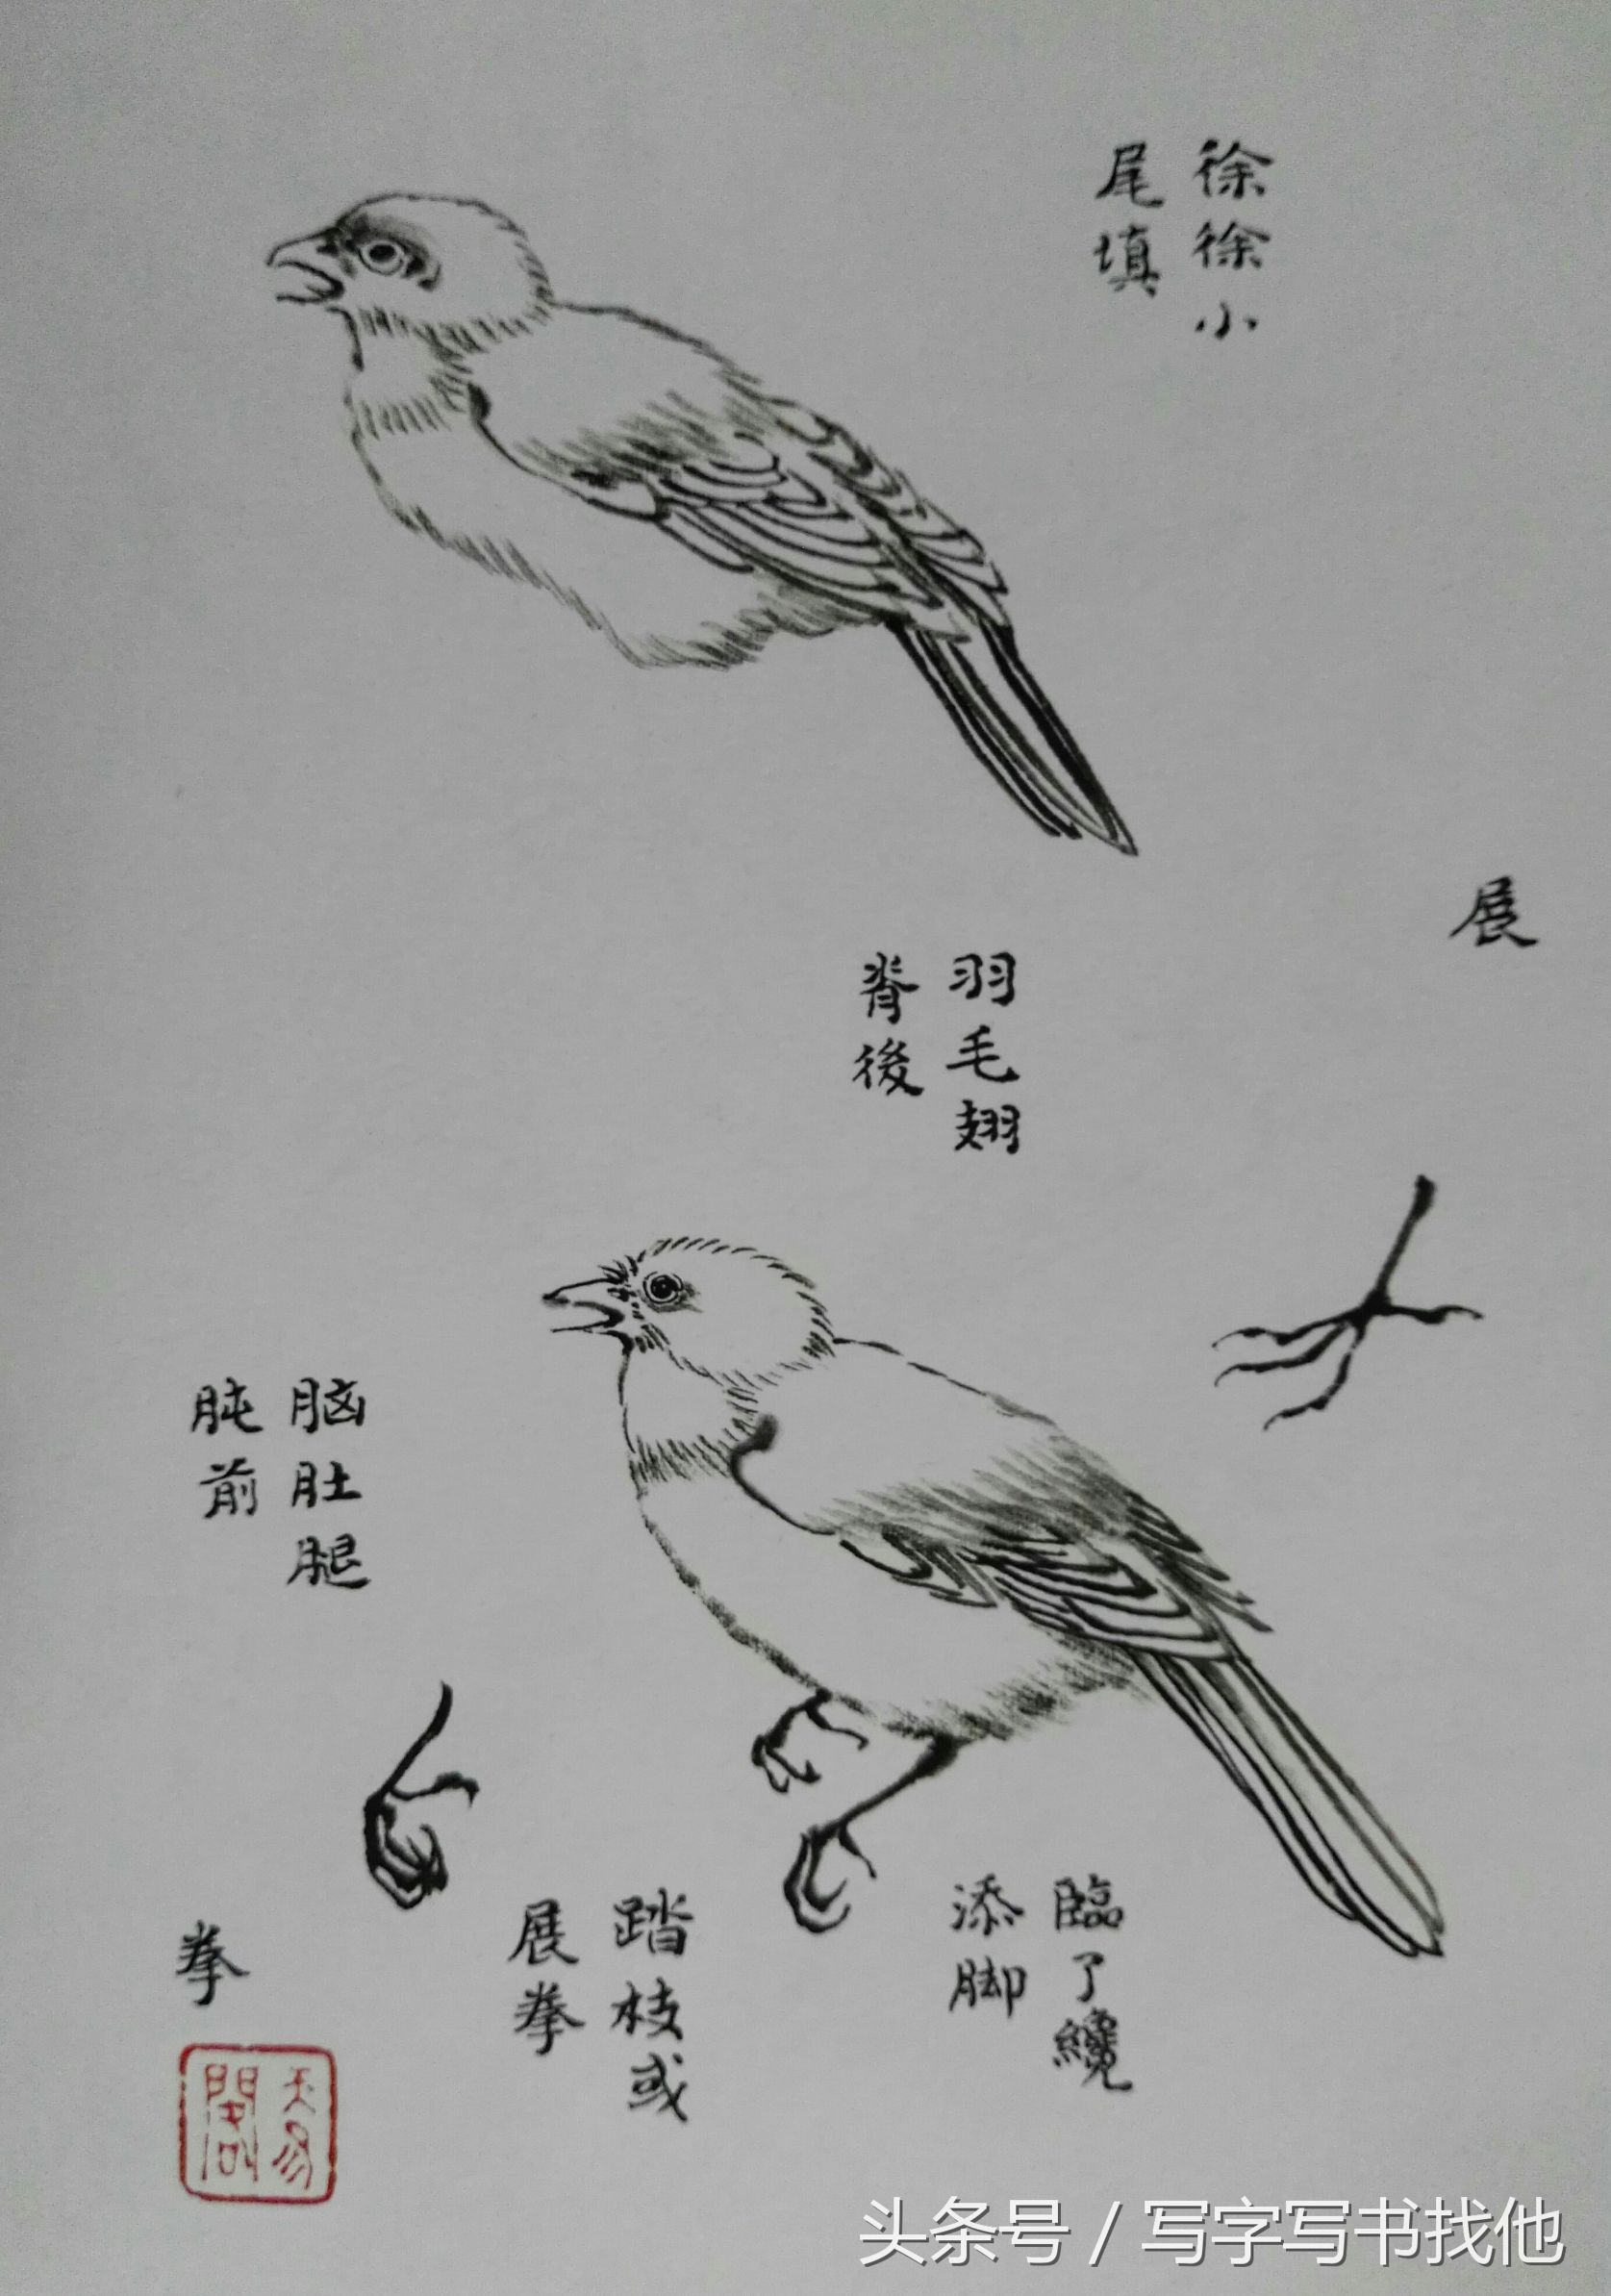 徐徐小
尾填
展
羽毛翅
脊後
脑肚腿
肫前
臨了纔
添脚
踏枝或
展拳
拳
头条号 / 写字写书找他